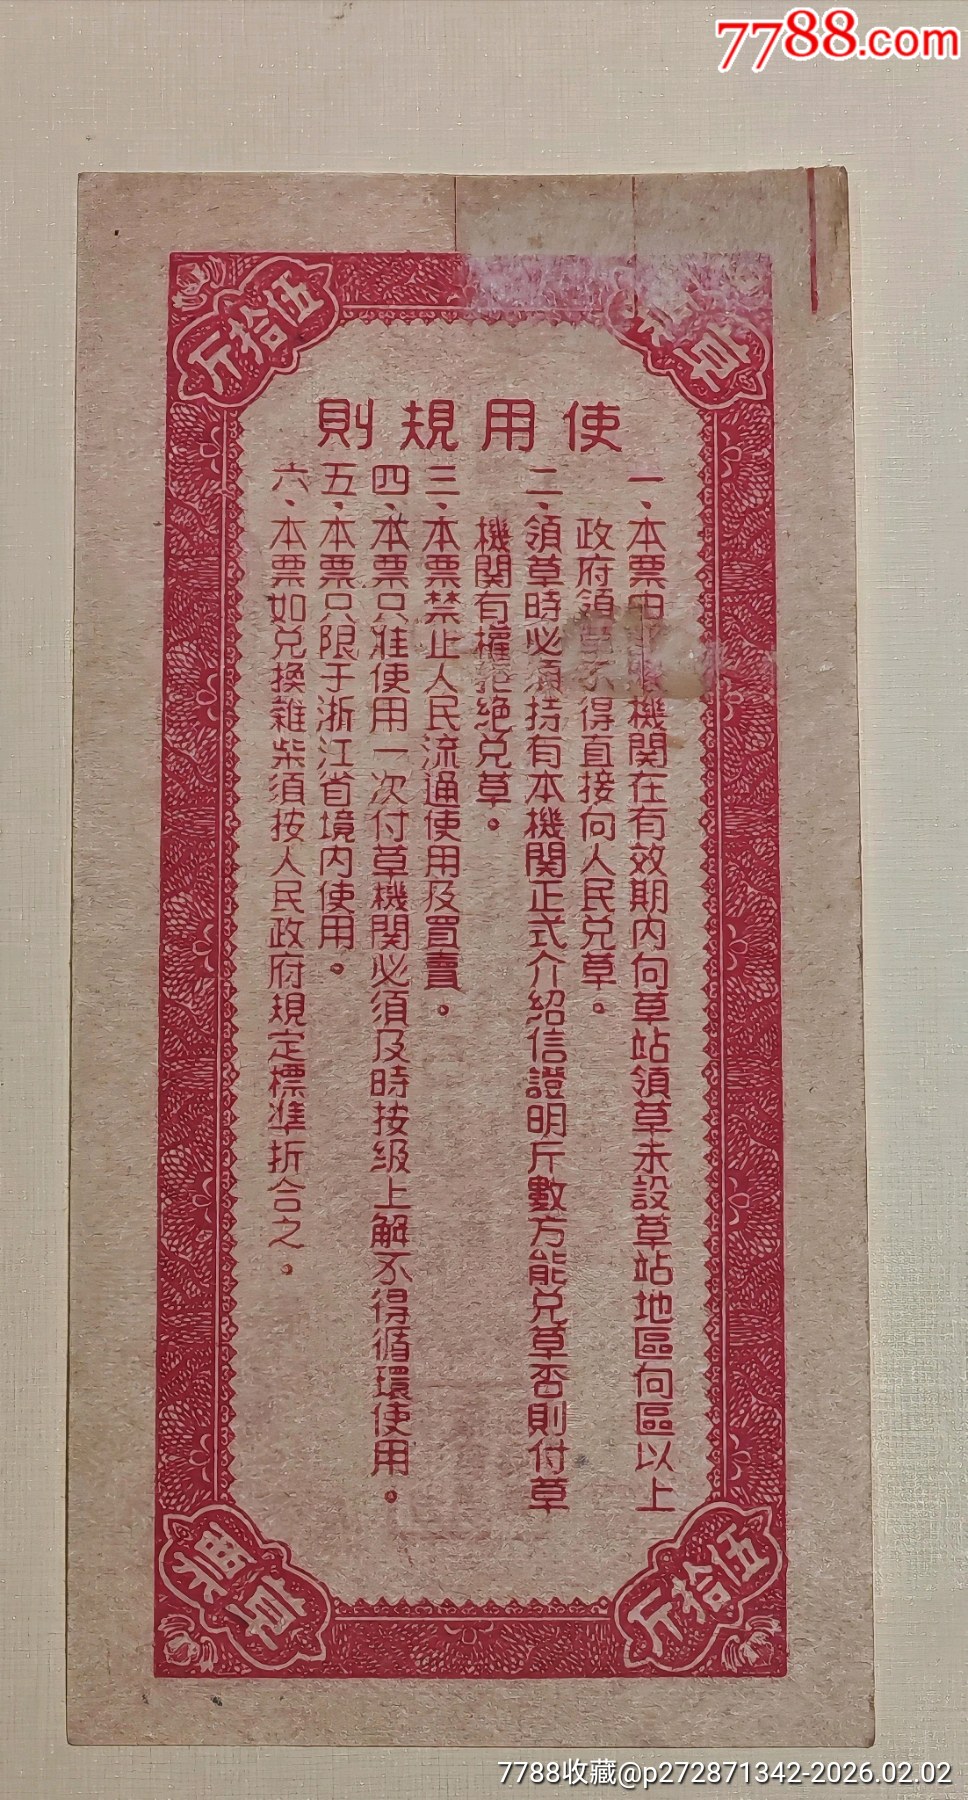 7788.com
伍拾斤
草
使用規則
一、本票由機關在有效期內向草站領草未設草站地區向區以上
政府領草不得直接向人民兌草。
二、領草時必須持有本機關正式介紹信證明斤數方能兌草否則付草
機關有權拒絕兌草。
三、本票禁止人民流通使用及買賣。
四、本票只准使用一次付草機關必須及時按級上解不得循環使用。
五、本票只限于浙江省境內使用。
六、本票如兌換雜柴須按人民政府規定標準折合之。
草票
伍拾斤
7788收藏@p272871342-2026.02.02